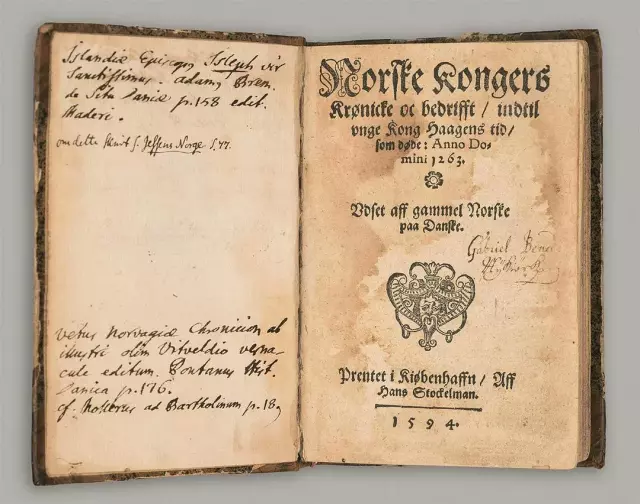 Islandiæ Episcop9 Isleph vir
Sanctissimus. adam9 Brem.
de Situ Daniæ p.158 edit.
Maderi.
om dette Skrift s. Jessens Norge S. 77.
vetus Norvagiæ Chronicon ab
illustri olim Vitveldio verna-
cule editum. Pontanus Hist.
Danica p.176.
cf. Mollerus ad Bartholinum p.18
Norske Kongers
Krønicke oc bedrifft / indtil
vnge Kong Haagens tid /
som døde: Anno Do-
mini 1263.
Vdset aff gammel Norske
paa Danske.
Gabriel
Prentet i Kiøbenhaffn / Aff
Hans Stockelman.
1594.